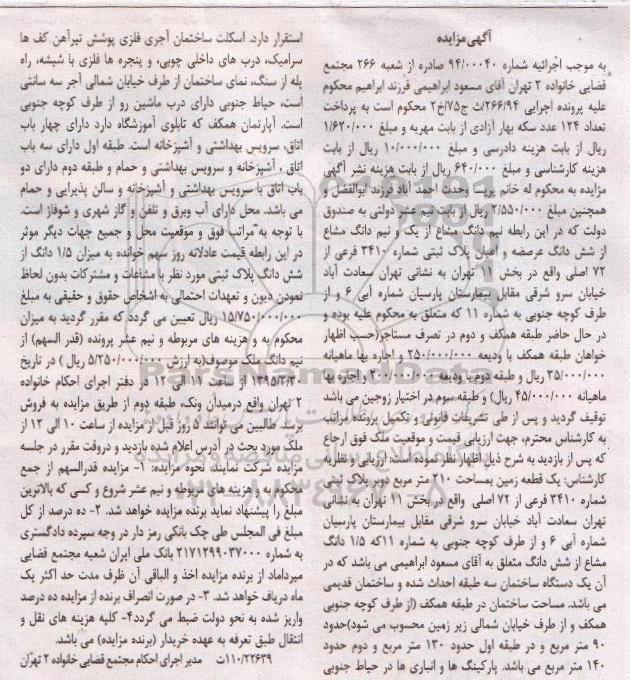 آگهی مزایده
به موجب اجرائیه شماره ۹۴/۰۰۰۴۰ صادره از شعبه ۲۶۶ مجتمع
قضایی خانواده ۲ تهران آقای مسعود ابراهیمی فرزند ابراهیم محکوم
علیه پرونده اجرایی ۲۶۶/۹۴ث ج۲خ/۷۵ محکوم است به پرداخت
تعداد ۱۲۴ عدد سکه بهار آزادی از بابت مهریه و مبلغ ۱/۶۲۰/۰۰۰
ریال از بابت هزینه دادرسی و مبلغ ۱۰/۰۰۰/۰۰۰ ریال از بابت
هزینه کارشناسی و مبلغ ۶۴۰/۰۰۰ ریال از بابت هزینه نشر آگهی
مزایده به محکوم له خانم وحدت احمد آباد فرزند ابوالفضل و
همچنین مبلغ ۲/۵۵۰/۰۰۰ ریال از بابت نیم عشر دولتی به صندوق
دولت که در این رابطه نیم دانگ مشاع از یک و نیم دانگ مشاع
از شش دانگ عرصه و اعیان پلاک ثبتی شماره ۳۴۱۰ فرعی از
۷۲ اصلی واقع در بخش ۱۱ تهران به نشانی تهران سعادت آباد
خیابان سرو شرقی مقابل بیمارستان پارسیان شماره آبی ۶ و از
طرف کوچه جنوبی به شماره ۱۱ که متعلق به محکوم علیه بوده و
در حال حاضر طبقه همکف و دوم در تصرف مستاجر(حسب اظهار
خواهان طبقه همکف با ودیعه ۲۵۰/۰۰۰/۰۰۰ و اجاره بها ماهیانه
۳۵/۰۰۰/۰۰۰ ریال و طبقه دوم با ودیعه ۲۰۰/۰۰۰/۰۰۰ و اجاره بها
ماهیانه ۴۵/۰۰۰/۰۰۰ ریال) و طبقه سوم در اختیار زوجین می باشد
توقیف گردید و پس از طی تشریفات قانونی و تکمیل پرونده مراتب
به کارشناس محترم، جهت ارزیابی قیمت و موقعیت ملک فوق ارجاع
که پس از بازدید به شرح ذیل اظهار نظر نموده است: ارزیابی و نظریه
کارشناس: یک قطعه زمین بمساحت ۲۱۰ متر مربع دوبر پلاک ثبتی
شماره ۳۴۱۰ فرعی از ۷۲ اصلی واقع در بخش ۱۱ تهران به نشانی
تهران سعادت آباد خیابان سرو شرقی مقابل بیمارستان پارسیان
شماره آبی ۶ و از طرف کوچه جنوبی به شماره ۱۱که ۱/۵ دانگ
مشاع از شش دانگ متعلق به آقای مسعود ابراهیمی می باشد که در
آن یک دستگاه ساختمان سه طبقه احداث شده و ساختمان قدیمی
می باشد. مساحت ساختمان در طبقه همکف (از طرف کوچه جنوبی
همکف و از طرف خیابان شمالی زیر زمین محسوب می شود)حدود
۹۰ متر مربع و در طبقه اول حدود ۱۳۰ متر مربع و دوم حدود
۱۴۰ متر مربع می باشد. پارکینگ ها و انباری ها در حیاط جنوبی
استقرار دارد. اسکلت ساختمان آجری فلزی پوشش تیرآهن کف ها
سرامیک، درب های داخلی چوبی، و پنجره ها فلزی با شیشه، راه
پله از سنگ، نمای ساختمان از طرف خیابان شمالی آجر سه سانتی
است، حیاط جنوبی دارای درب ماشین رو از طرف کوچه جنوبی
است. آپارتمان همکف که تابلوی آموزشگاه دارد دارای چهار باب
اتاق، سرویس بهداشتی و آشپزخانه است. طبقه اول دارای سه باب
اتاق ، آشپزخانه و سرویس بهداشتی و حمام و طبقه دوم دارای دو
باب اتاق با سرویس بهداشتی و آشپزخانه و سالن پذیرایی و حمام
می باشد. محل دارای آب وبرق و تلفن و گاز شهری و شوفاژ است.
با توجه به مراتب فوق و موقعیت محل و جمیع جهات دیگر موثر
در این رابطه قیمت عادلانه روز سهم خوانده به میزان ۱/۵ دانگ از
شش دانگ پلاک ثبتی مورد نظر با مشاعات و مشترکات بدون لحاظ
نمودن دیون و تعهدات احتمالی به اشخاص حقوق و حقیقی به مبلغ
۱۵/۷۵۰/۰۰۰/۰۰۰ ریال تعیین می گردد که مقرر گردید به میزان
محکوم به و هزینه های مربوطه و نیم عشر پرونده (قدر السهم) از
نیم دانگ ملک موصوف(به ارزش ۵/۲۵۰/۰۰۰/۰۰۰ ریال ) در تاریخ
۱۳۹۵/۳/۳۰ از ساعت ۱۱ الی ۱۲ در دفتر اجرای احکام خانواده
۲ تهران واقع درمیدان ونک، طبقه دوم از طریق مزایده به فروش
برسد طالبین می توانند ۵ روز قبل از مزایده از ساعت ۱۰ الی ۱۲ از
ملک مورد بحث در آدرس اعلام شده بازدید و دروقت مقرر در جلسه
مزایده شرکت نمایند. نحوه مزایده: ۱- مزایده قدرالسهم از جمع
محکوم به و هزینه های مربوطه و نیم عشر شروع و کسی که بالاترین
مبلغ را پیشنهاد نماید برنده مزایده خواهد شد. ۲- ده درصد از کل
مبلغ فی المجلس طی چک بانکی رمز دار در وجه سپرده دادگستری
به شماره ۲۱۷۱۲۹۹۰۳۷۰۰۰ بانک ملی ایران شعبه مجتمع قضایی
میرداماد از برنده مزایده اخذ و الباقی آن ظرف مدت حد اکثر یک
ماه دریافت خواهد شد. ۳- در صورت انصراف برنده از مزایده ده درصد
واریز شده به نحو دولت ضبط می گردد۴- کلیه هزینه های نقل و
انتقال طبق تعرفه به عهده خریدار (برنده مزایده) می باشد.
۱۱۰/۲۲۶۳۹ت مدیر اجرای احکام مجتمع قضایی خانواده ۲ تهران
ParsNamadData